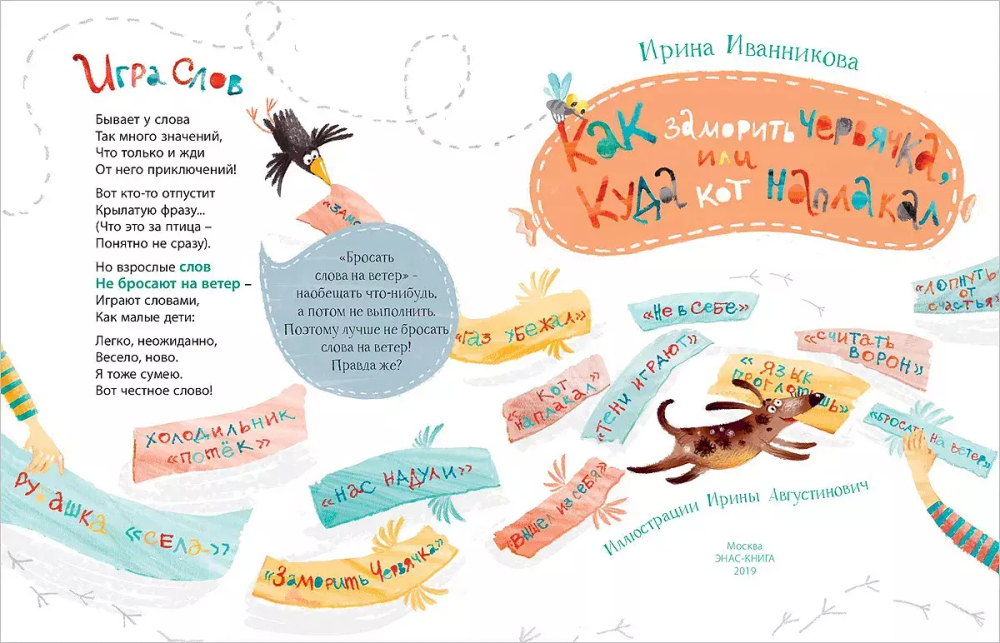 Игра Слов
Бывает у слова
Так много значений,
Что только и жди
От него приключений!
Вот кто-то отпустит
Крылатую фразу...
(Что это за птица –
Понятно не сразу).
Но взрослые слов
Не бросают на ветер –
Играют словами,
Как малые дети:
Легко, неожиданно,
Весело, ново.
Я тоже сумею.
Вот честное слово!
«Замо
«Бросать
слова на ветер» –
наобещать что-нибудь,
а потом не выполнить.
Поэтому лучше не бросать
слова на ветер!
Правда же?
холодильник
«потёк»
рубашка «села»
«нас надули»
«Заморить Червячка»
Ирина Иванникова
Как заморить червячка,
или
Куда кот наплакал
«Лопнуть
от
счастья»
«Не в себе»
«газ убежал»
«считать
ворон»
«Тени играют»
«кот
наплакал»
«язык
проглотишь»
«Бросать на ветер»
«Вышел из себя»
Иллюстрации Ирины Августинович
Москва
ЭНАС-КНИГА
2019